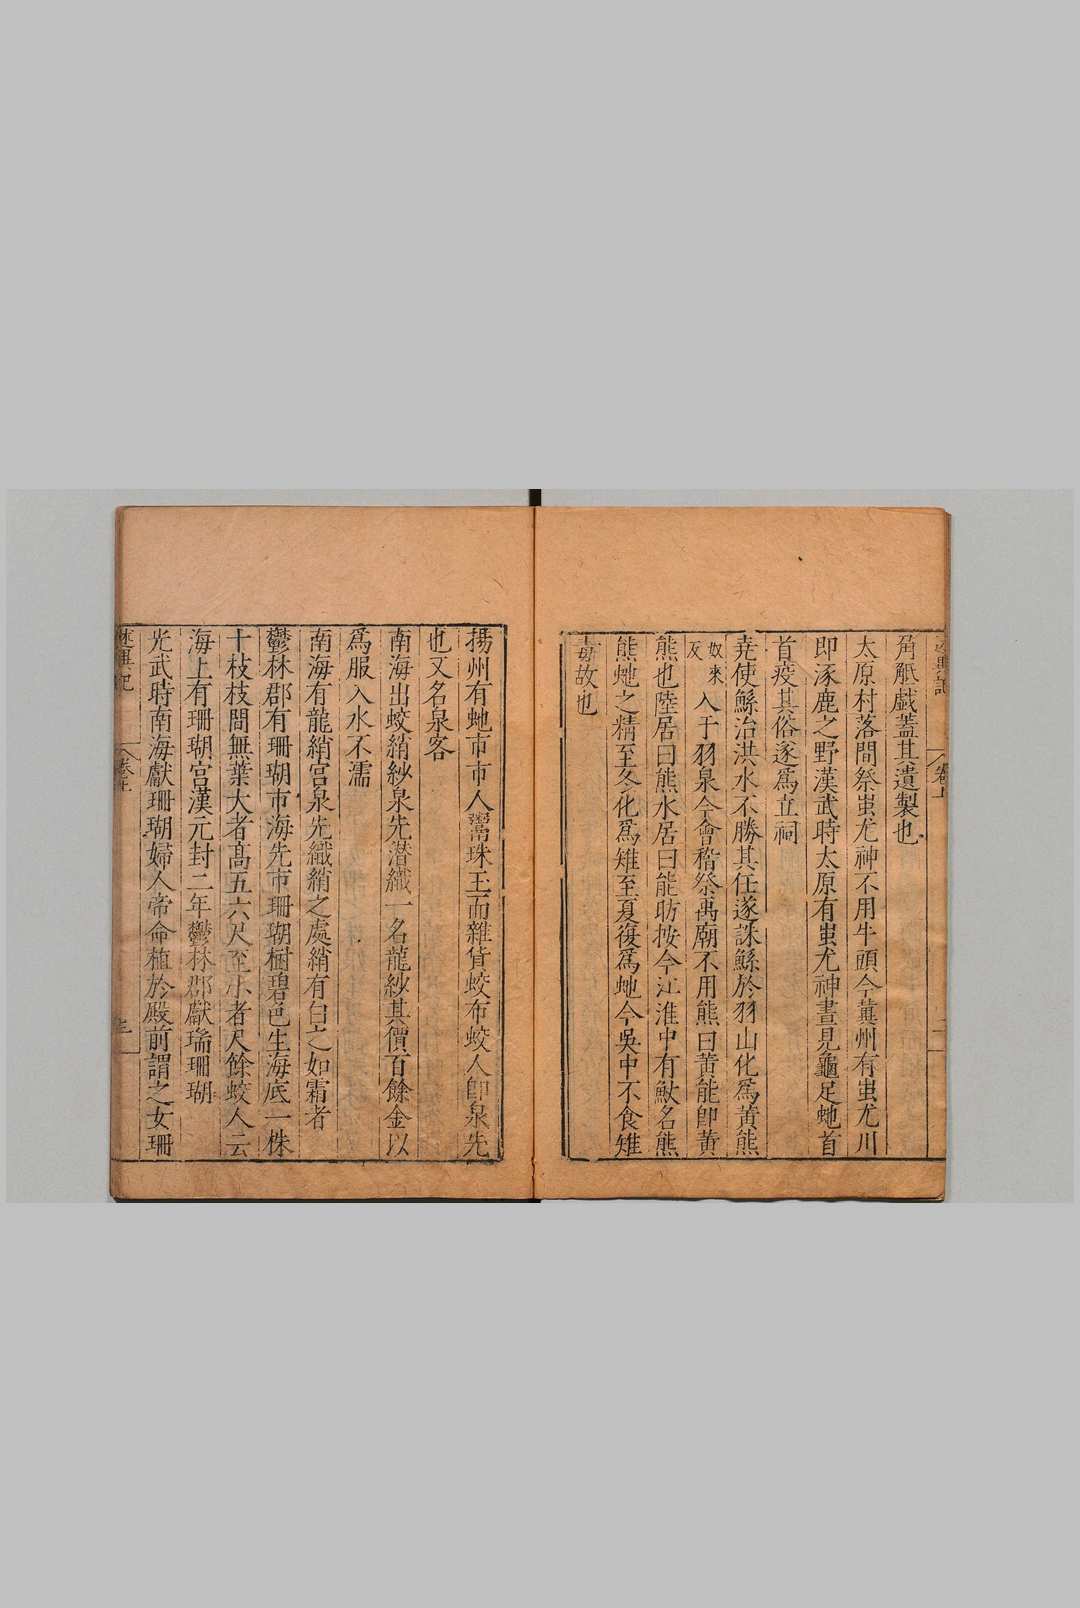 角觝戯蓋其遺製也
太原村落間祭蚩尤神不用牛頭今冀州有蚩尤川
即涿鹿之野漢武時太原有蚩尤神晝見龜足虵首
首疫其俗遂爲立祠
堯使鯀治洪水不勝其任遂誅鯀於羽山化爲黃熊
奴來反入于羽泉今會稽祭禹廟不用熊曰黃能即黃
熊也陸居曰熊水居曰能昉按今江淮中有獸名熊
熊虵之精至冬化爲雉至夏復爲虵今吳中不食雉
毒故也
揚州有虵市市人鬻珠玉而雜貨蛟布蛟人即泉先
也又名泉客
南海出蛟綃紗泉先潛織一名龍紗其價百餘金以
爲服入水不濡
南海有龍綃宮泉先織綃之處綃有白之如霜者
鬱林郡有珊瑚市海先市珊瑚樹碧色生海底一株
十枝枝間無葉大者高五六尺至小者尺餘蛟人云
海上有珊瑚宮漢元封二年鬱林郡獻瑞珊瑚
光武時南海獻珊瑚婦人帝命植於殿前謂之女珊
述異記
卷上
三